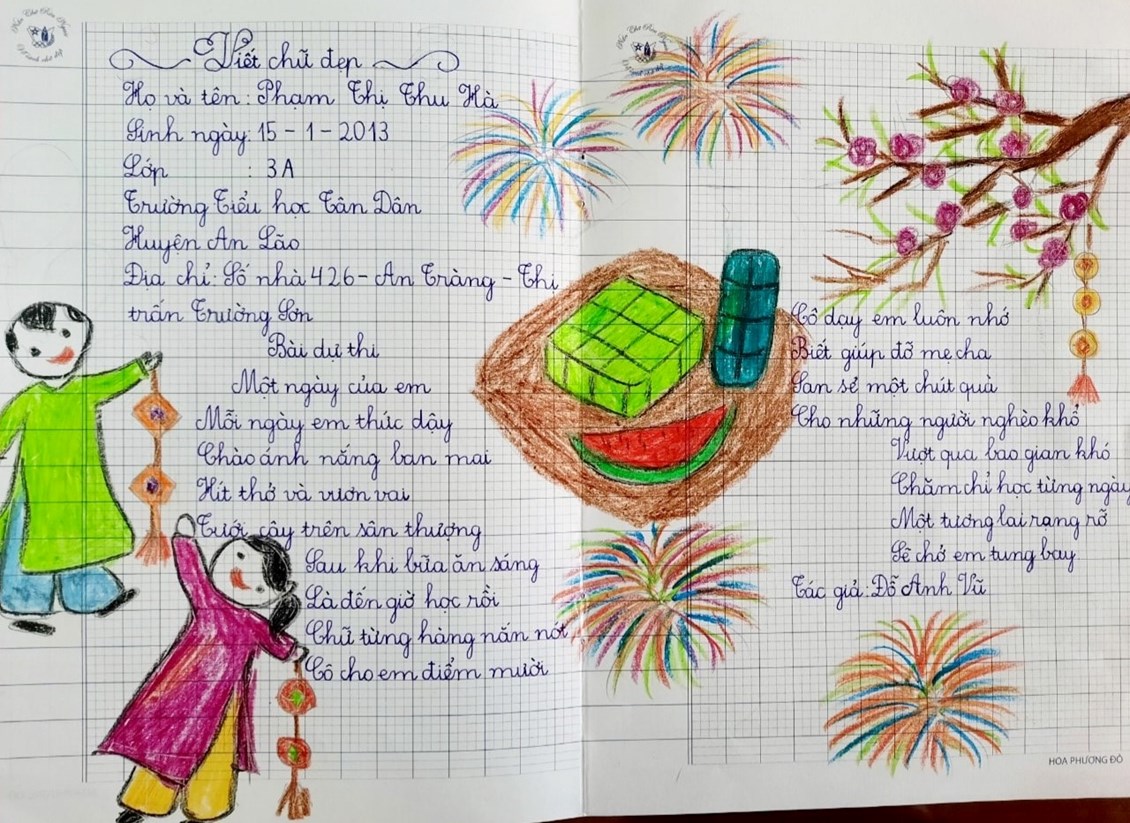 Viết chữ đẹp
Họ và tên: Phạm Thị Thu Hà
Sinh ngày: 15 - 1 - 2013
Lớp : 3A
Trường Tiểu học Tân Dân
Huyện An Lão
Địa chỉ: Số nhà 426 - An Tràng - Thị
trấn Trường Sơn
Bài dự thi
Một ngày của em
Mỗi ngày em thức dậy
Chào ánh nắng ban mai
Hít thở và vươn vai
Tưới cây trên sân thượng
Sau khi bữa ăn sáng
Là đến giờ học rồi
Chữ từng hàng nắn nót
Cô cho em điểm mười
Cô dạy em luôn nhớ
Biết giúp đỡ mẹ cha
San sẻ một chút quà
Cho những người nghèo khổ
Vượt qua bao gian khó
Chăm chỉ học từng ngày
Một tương lai rạng rỡ
Sẽ chở em tung bay
Tác giả: Đỗ Anh Vũ
HOA PHƯỢNG ĐỎ